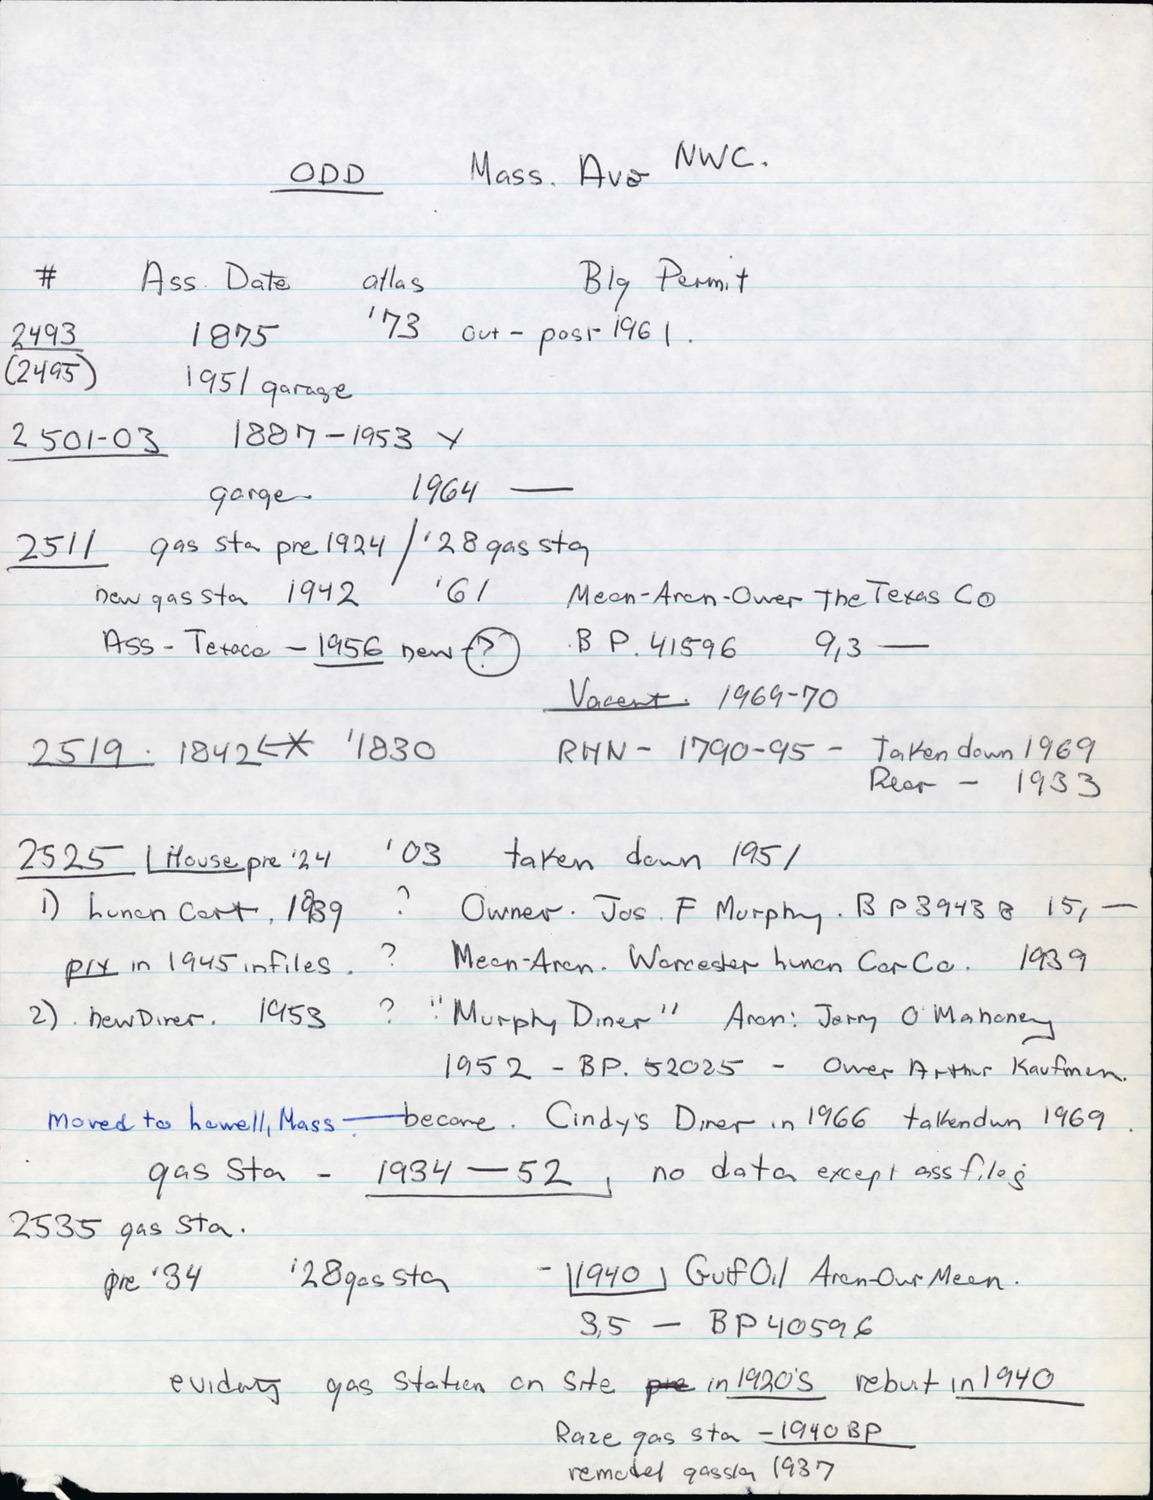 ODD Mass. Ave NWC.
# Ass. Date atlas Blg Permit
2493 1875 '73 out - post 1961.
(2495) 1951 garage
2501-03 1887-1953 X
garge 1964 —
2511 gas sta pre 1924 / '28 gas sta
new gas sta 1942 '61 Mecn-Arcn-Ower The Texas Co
Ass - Texaco - 1956 new (?) B P. 41596 9,3 —
Vacant. 1969-70
2519. 1842 ←* '1830 RHN - 1790-95 - Taken down 1969
Rear - 1933
2525 House pre '24 '03 taken down 1951
1) Lunch Cart, 1939 ? Owner. Jos. F Murphy. B P 39438 15, —
pix in 1945 in files. ? Mecn-Arcn. Worcester Lunch Car Co. 1939
2). New Diner. 1953 ? "Murphy Diner" Arcn: Jerry O'Mahoney
1952 - BP. 52025 - Ower Arthur Kaufman.
moved to Lowell, Mass — became. Cindy's Diner in 1966 takendwn 1969.
gas Sta - 1934 — 52, no data except ass files
2535 gas sta.
pre '34 '28 gas sta - 1940 Gulf Oil Arcn-Our Mecn.
3,5 — BP 40596
gas station on site pre in 1920's rebuit in 1940
Raze gas sta - 1940 BP
remodel gas sta 1937